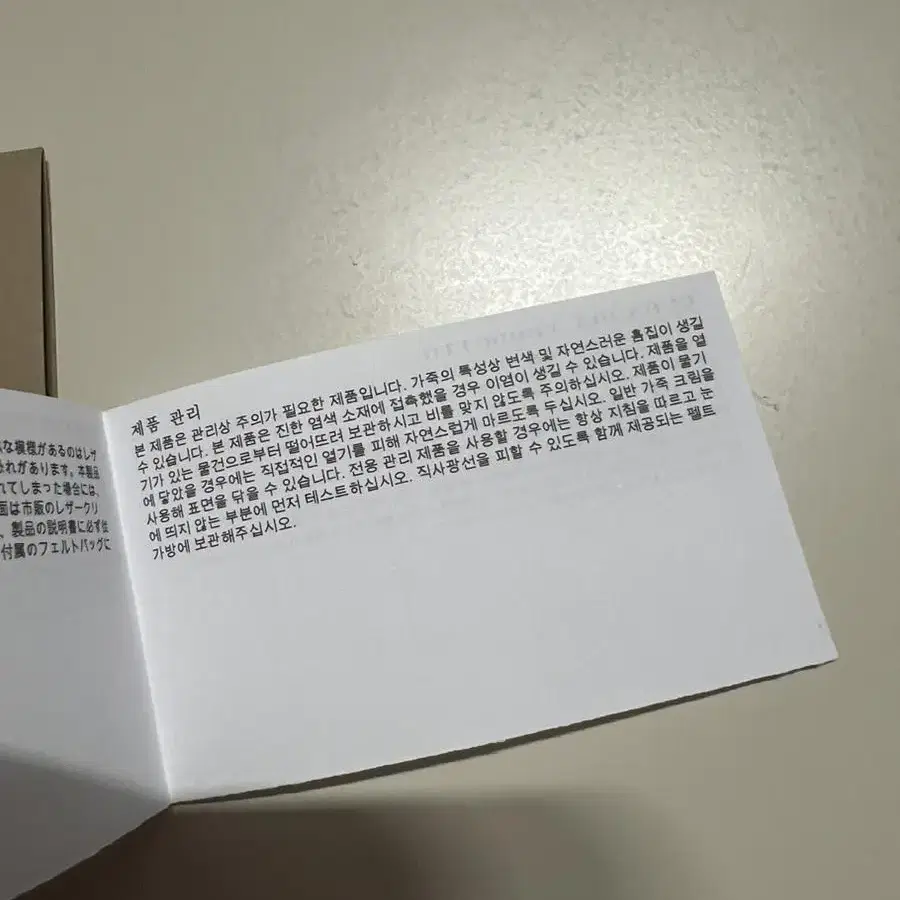 な模様があるのはレザ
恐れがあります。本製品
れてしまった場合には、
面は市販のレザークリ
、製品の説明書に必ず
付属のフェルトバッグに
제품 관리
본 제품은 관리상 주의가 필요한 제품입니다. 가죽의 특성상 변색 및 자연스러운 흠집이 생길
수 있습니다. 본 제품은 진한 염색 소재에 접촉했을 경우 이염이 생길 수 있습니다. 제품을 열
기가 있는 물건으로부터 떨어뜨려 보관하시고 비를 맞지 않도록 주의하십시오. 제품이 물기
에 닿았을 경우에는 직접적인 열기를 피해 자연스럽게 마르도록 두십시오. 일반 가죽 크림을
사용해 표면을 닦을 수 있습니다. 전용 관리 제품을 사용할 경우에는 항상 지침을 따르고 눈
에 띄지 않는 부분에 먼저 테스트하십시오. 직사광선을 피할 수 있도록 함께 제공되는 펠트
가방에 보관해주십시오.